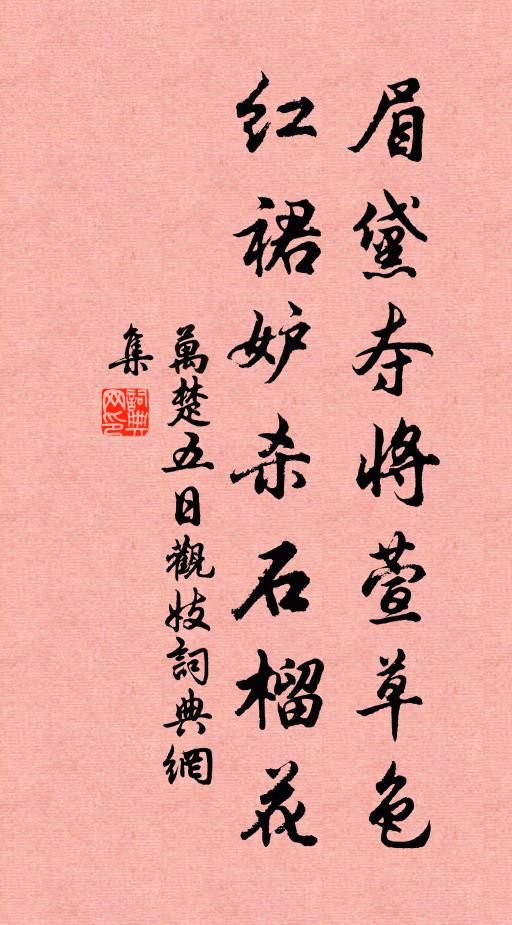 眉黛夺将萱草色
红裙妒杀石榴花
萬楚五日觀妓詞典網
集
詞典
网印